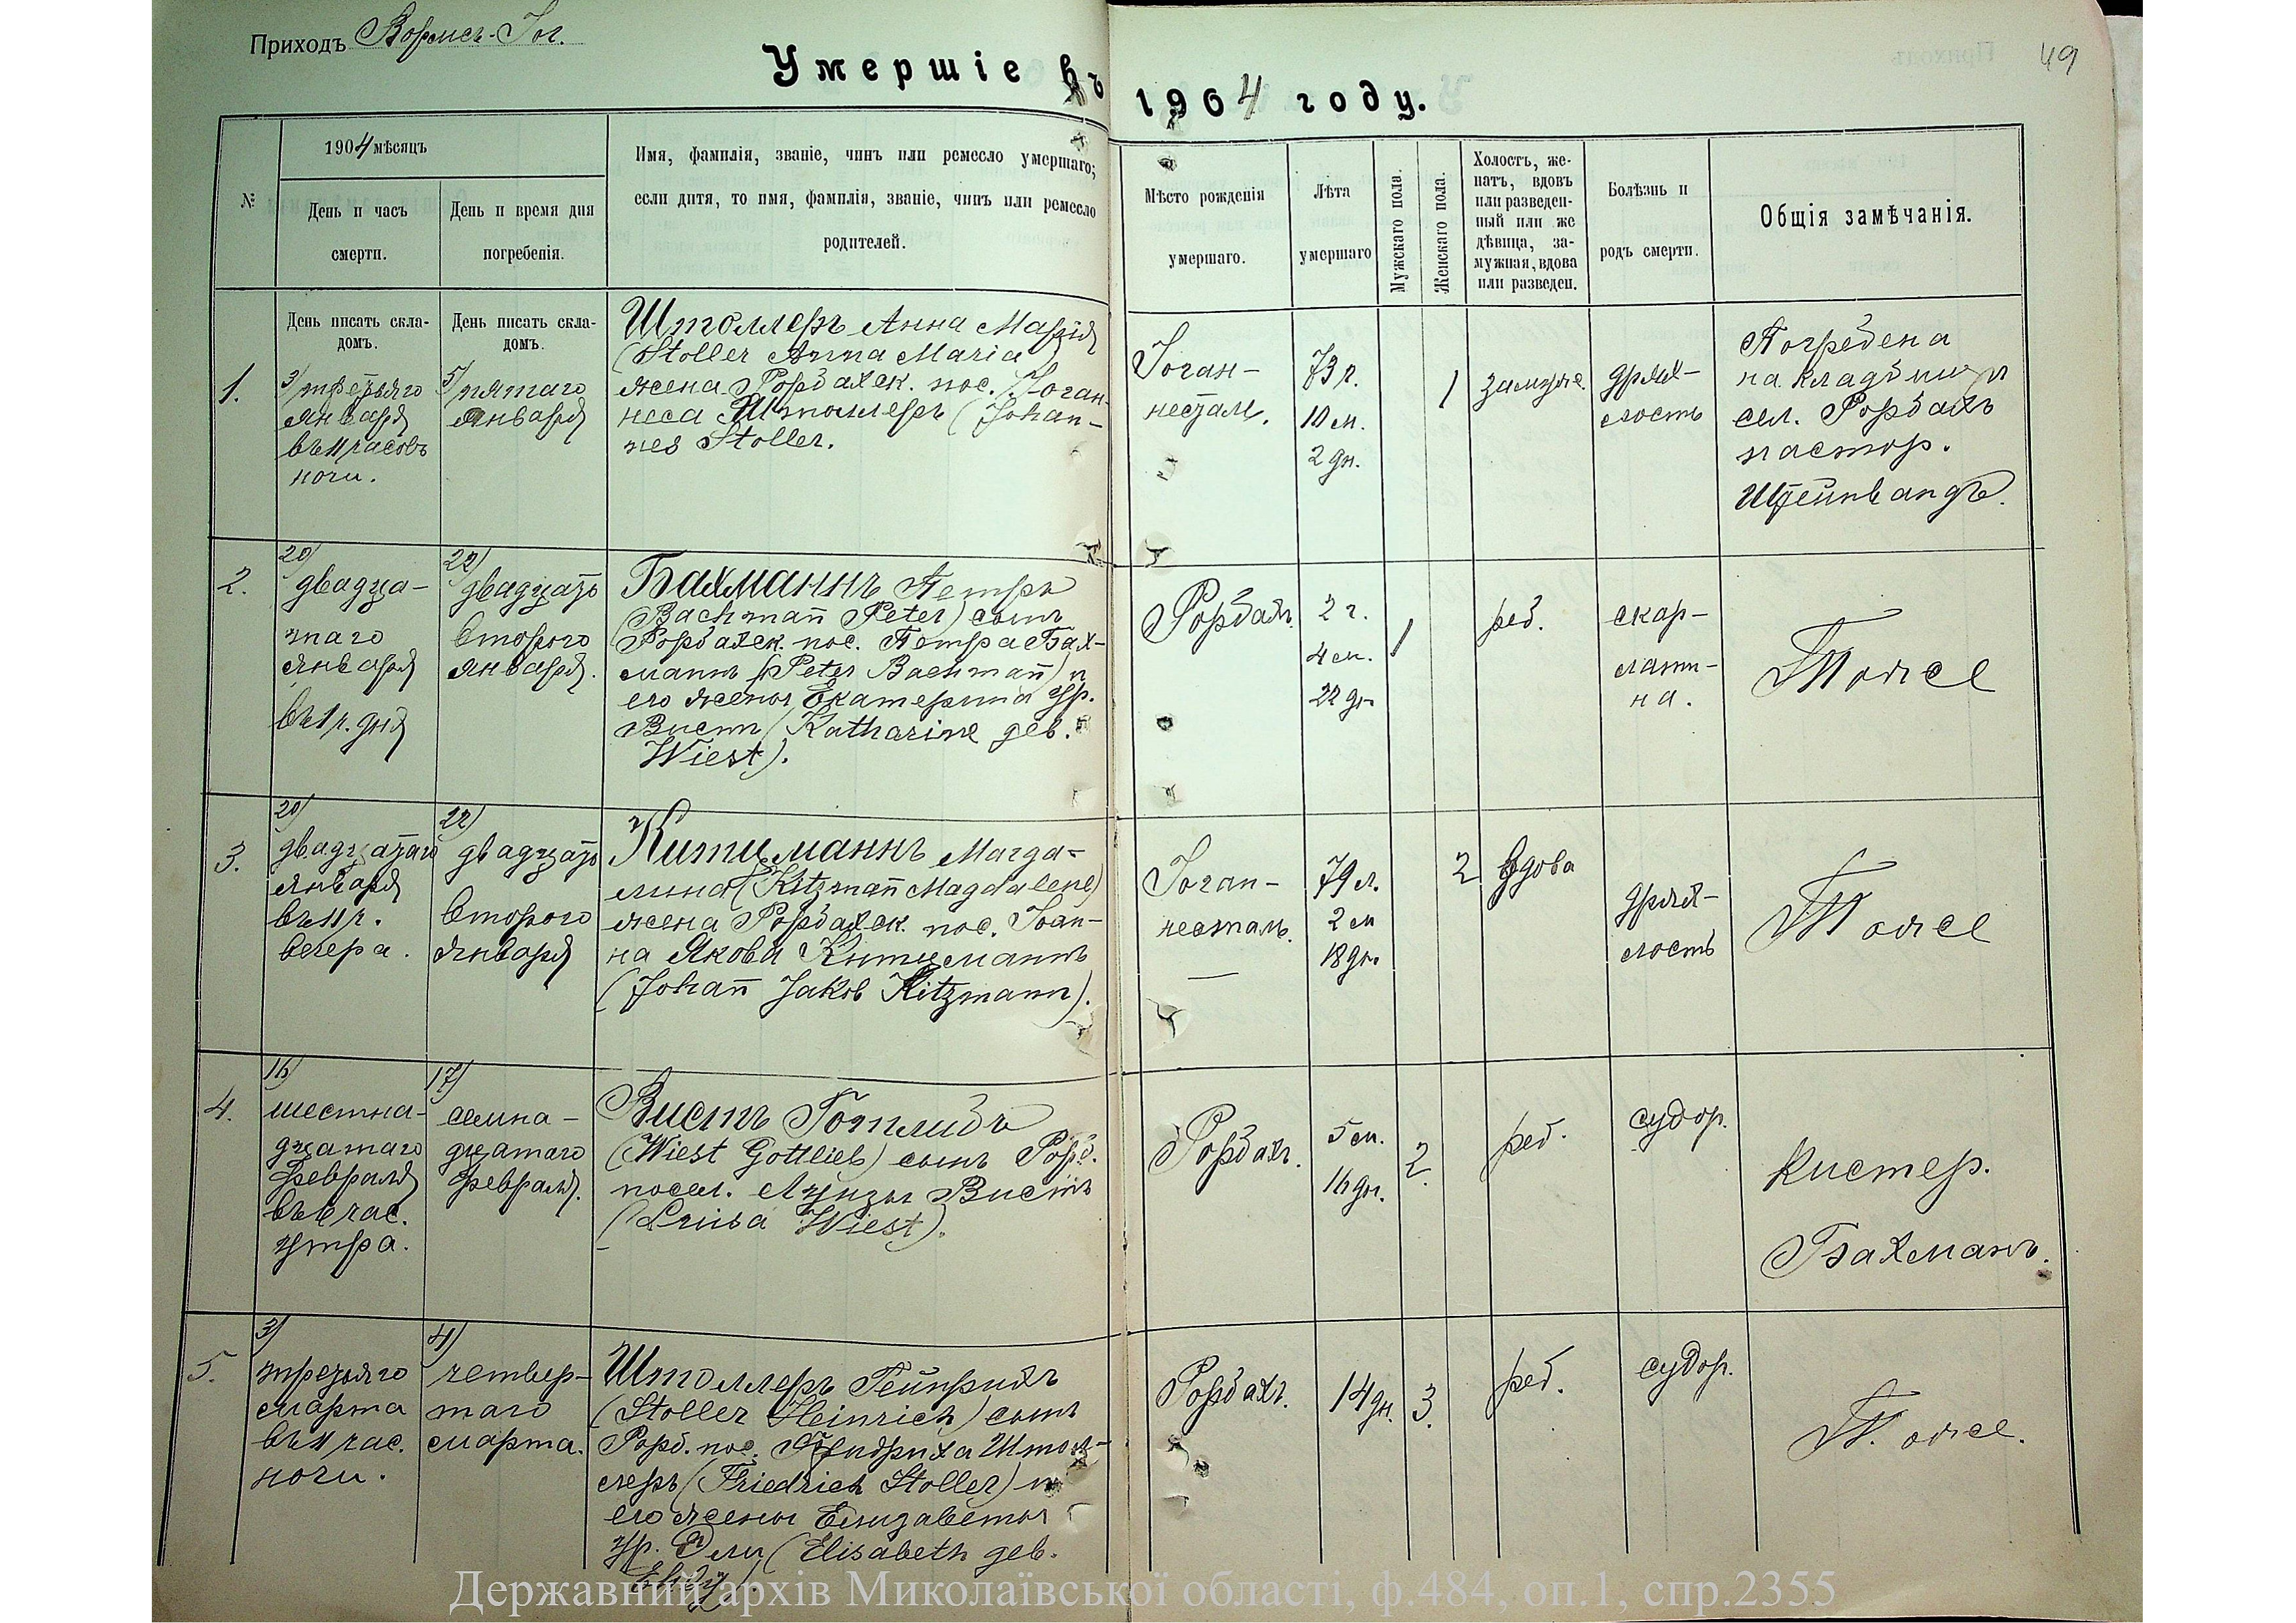 Приходъ Вормсъ-Іог.
49
Умершіе въ 1904 году.
№
1904 мѣсяцъ
День и часъ
смерти.
День и время дня
погребенія.
Имя, фамилія, званіе, чинъ или ремесло умершаго;
если дитя, то имя, фамилія, званіе, чинъ или ремесло
родителей.
Мѣсто рожденія
умершаго.
Лѣта
умершаго
Мужскаго пола.
Женскаго пола.
Холостъ, же-
натъ, вдовъ
или разведен-
ный или же
дѣвица, за-
мужняя, вдова
или разведен.
Болѣзнь и
родъ смерти.
Общія замѣчанія.
День писать скла-
домъ.
День писать скла-
домъ.
1.
3/ третьяго
января
въ 11 часовъ
ночи.
5/ пятаго
января
Штоллеръ Анна Марія
(Stoller Anna Maria)
жена Рорбахск. пос. Іоган-
неса Штоллеръ (Johan-
nes Stoller.
Іоган-
несталь.
73 г.
10 м.
2 дн.
1
замужн.
дрях-
лость
Погребена
на кладбищѣ
сел. Рорбахъ
пастор.
Штейнвандъ.
2.
20/
двадца-
таго
января
въ 1 ч. дня
22/
двадцать
второго
января.
Бахманнъ Петръ
(Bachmañ Peter) сынъ
Рорбахск. пос. Петра Бах-
манъ (Peter Bachmañ) и
его жены Екатерина ур.
Вистъ (Katharine geb.
Wiest).
Рорбахъ.
2 г.
4 м.
22 дн
1
реб.
скар-
лати-
на.
Тоже
3.
20/
двадцатаго
января
въ 11 ч.
вечера.
22/
двадцать
второго
января
Китцманнъ Магда-
лина (Kitzmañ Magdalene)
жена Рорбахск. пос. Іоан-
на Якова Китцманнъ
(Johañ Jakob Kitzmann).
Іоган-
несталь.
79 л.
2 м
18 дн.
2
вдова
дрях-
лость
Тоже
4.
16/
шестна-
дцатаго
февраля
въ 6 час.
утра.
17/
семна-
дцатаго
февраля.
Вистъ Готлибъ
(Wiest Gottlieb) сынъ Рорб.
посел. Луизы Вистъ
(Luisa Wiest).
Рорбахъ.
5 м.
16 дн.
2.
реб.
судор.
Кистер.
Бахманъ.
5.
3/
третьяго
марта
въ 11 час.
ночи.
4/
четвер-
таго
марта.
Штоллеръ Гейнрихъ
(Stoller Heinrich) сынъ
Рорб. пос. Фридриха Штол-
леръ (Friedrich Stoller) и
его жены Елизаветы
ур. (Elisabeth geb.
Рорбахъ.
14 дн.
3.
реб.
судор.
Тоже.
Державний архів Миколаївської області, ф.484, оп.1, спр.2355